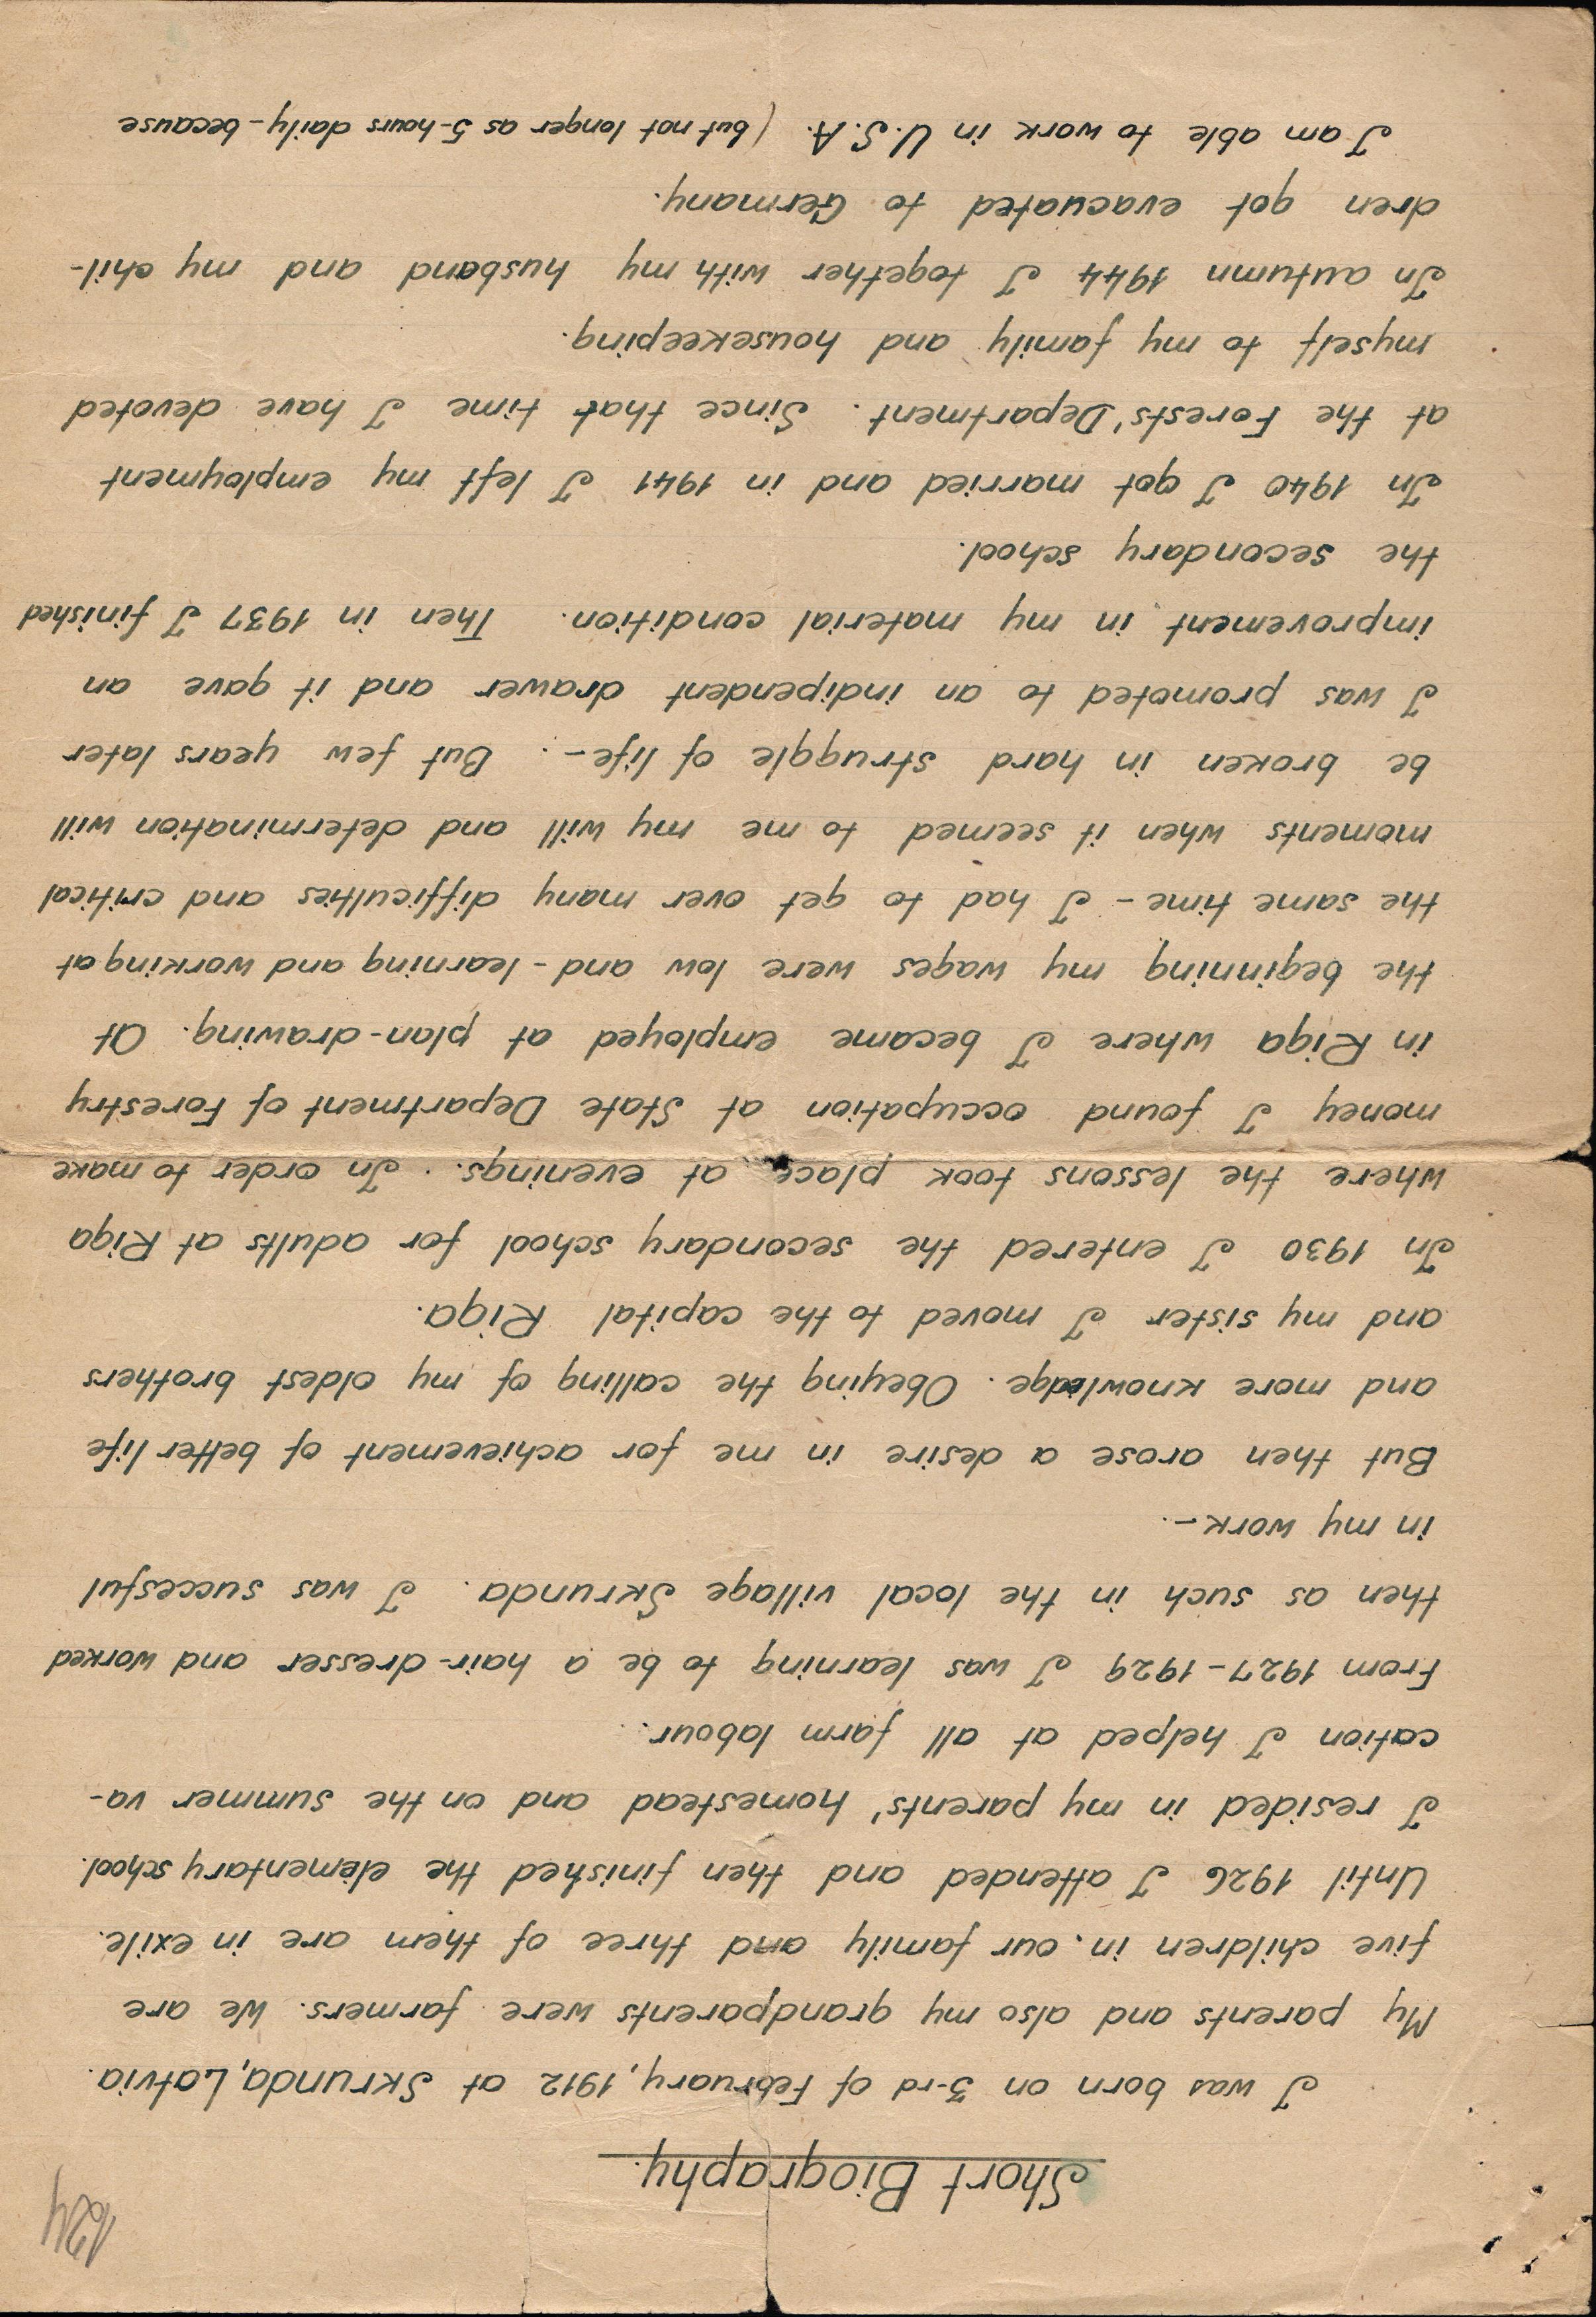 1624
Short Biography.
I was born on 3-rd of February, 1912 at Skrunda, Latvia.
My parents and also my grandparents were farmers. We are
five children in our family and three of them are in exile.
Until 1926 I attended and then finished the elementary school.
I resided in my parents' homestead and on the summer va-
cation I helped at all farm labour.
From 1927-1929 I was learning to be a hair-dresser and worked
then as such in the local village Skrunda. I was succesful
in my work-.
But then arose a desire in me for achievement of better life
and more knowledge. Obeying the calling of my oldest brothers
and my sister I moved to the capital Riga.
In 1930 I entered the secondary school for adults at Riga
where the lessons took place at evenings. In order to make
money I found occupation at State Department of Forestry
in Riga where I became employed at plan-drawing. At
the beginning my wages were low and - learning and working at
the same time - I had to get over many difficulties and critical
moments when it seemed to me my will and determination will
be broken in hard struggle of life-. But few years later
I was promoted to an indipendent drawer and it gave an
improvement in my material condition. Then in 1937 I finished
the secondary school.
In 1940 I got married and in 1941 I left my employment
at the Forests' Department. Since that time I have devoted
myself to my family and housekeeping.
In autumn 1944 I together with my husband and my chil-
dren got evacuated to Germany.
I am able to work in U.S.A. (but not longer as 5-hours daily - because